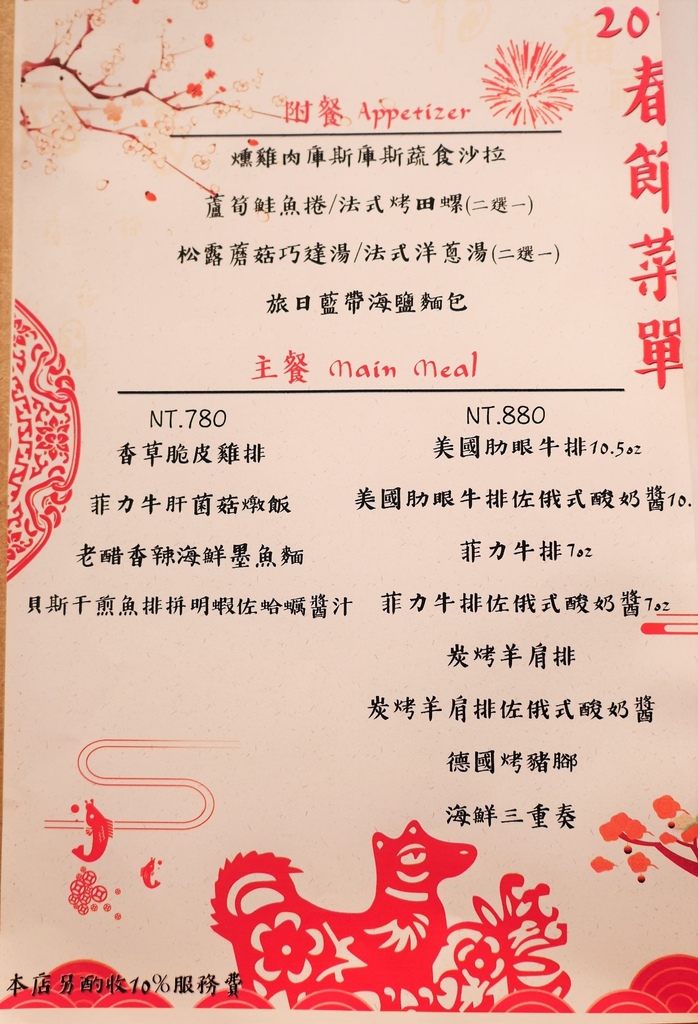 201
春節菜單
附餐 Appetizer
燻雞肉庫斯庫斯蔬食沙拉
蘆筍鮭魚捲/法式烤田螺(二選一)
松露蘑菇巧達湯/法式洋蔥湯(二選一)
旅日藍帶海鹽麵包
主餐 Main Meal
NT.780
香草脆皮雞排
菲力牛肝菌菇燉飯
老醋香辣海鮮墨魚麵
貝斯干煎魚排拼明蝦佐蛤蠣醬汁
NT.880
美國肋眼牛排10.5oz
美國肋眼牛排佐俄式酸奶醬10.
菲力牛排7oz
菲力牛排佐俄式酸奶醬7oz
炭烤羊肩排
炭烤羊肩排佐俄式酸奶醬
德國烤豬腳
海鮮三重奏
本店另酌收10%服務費